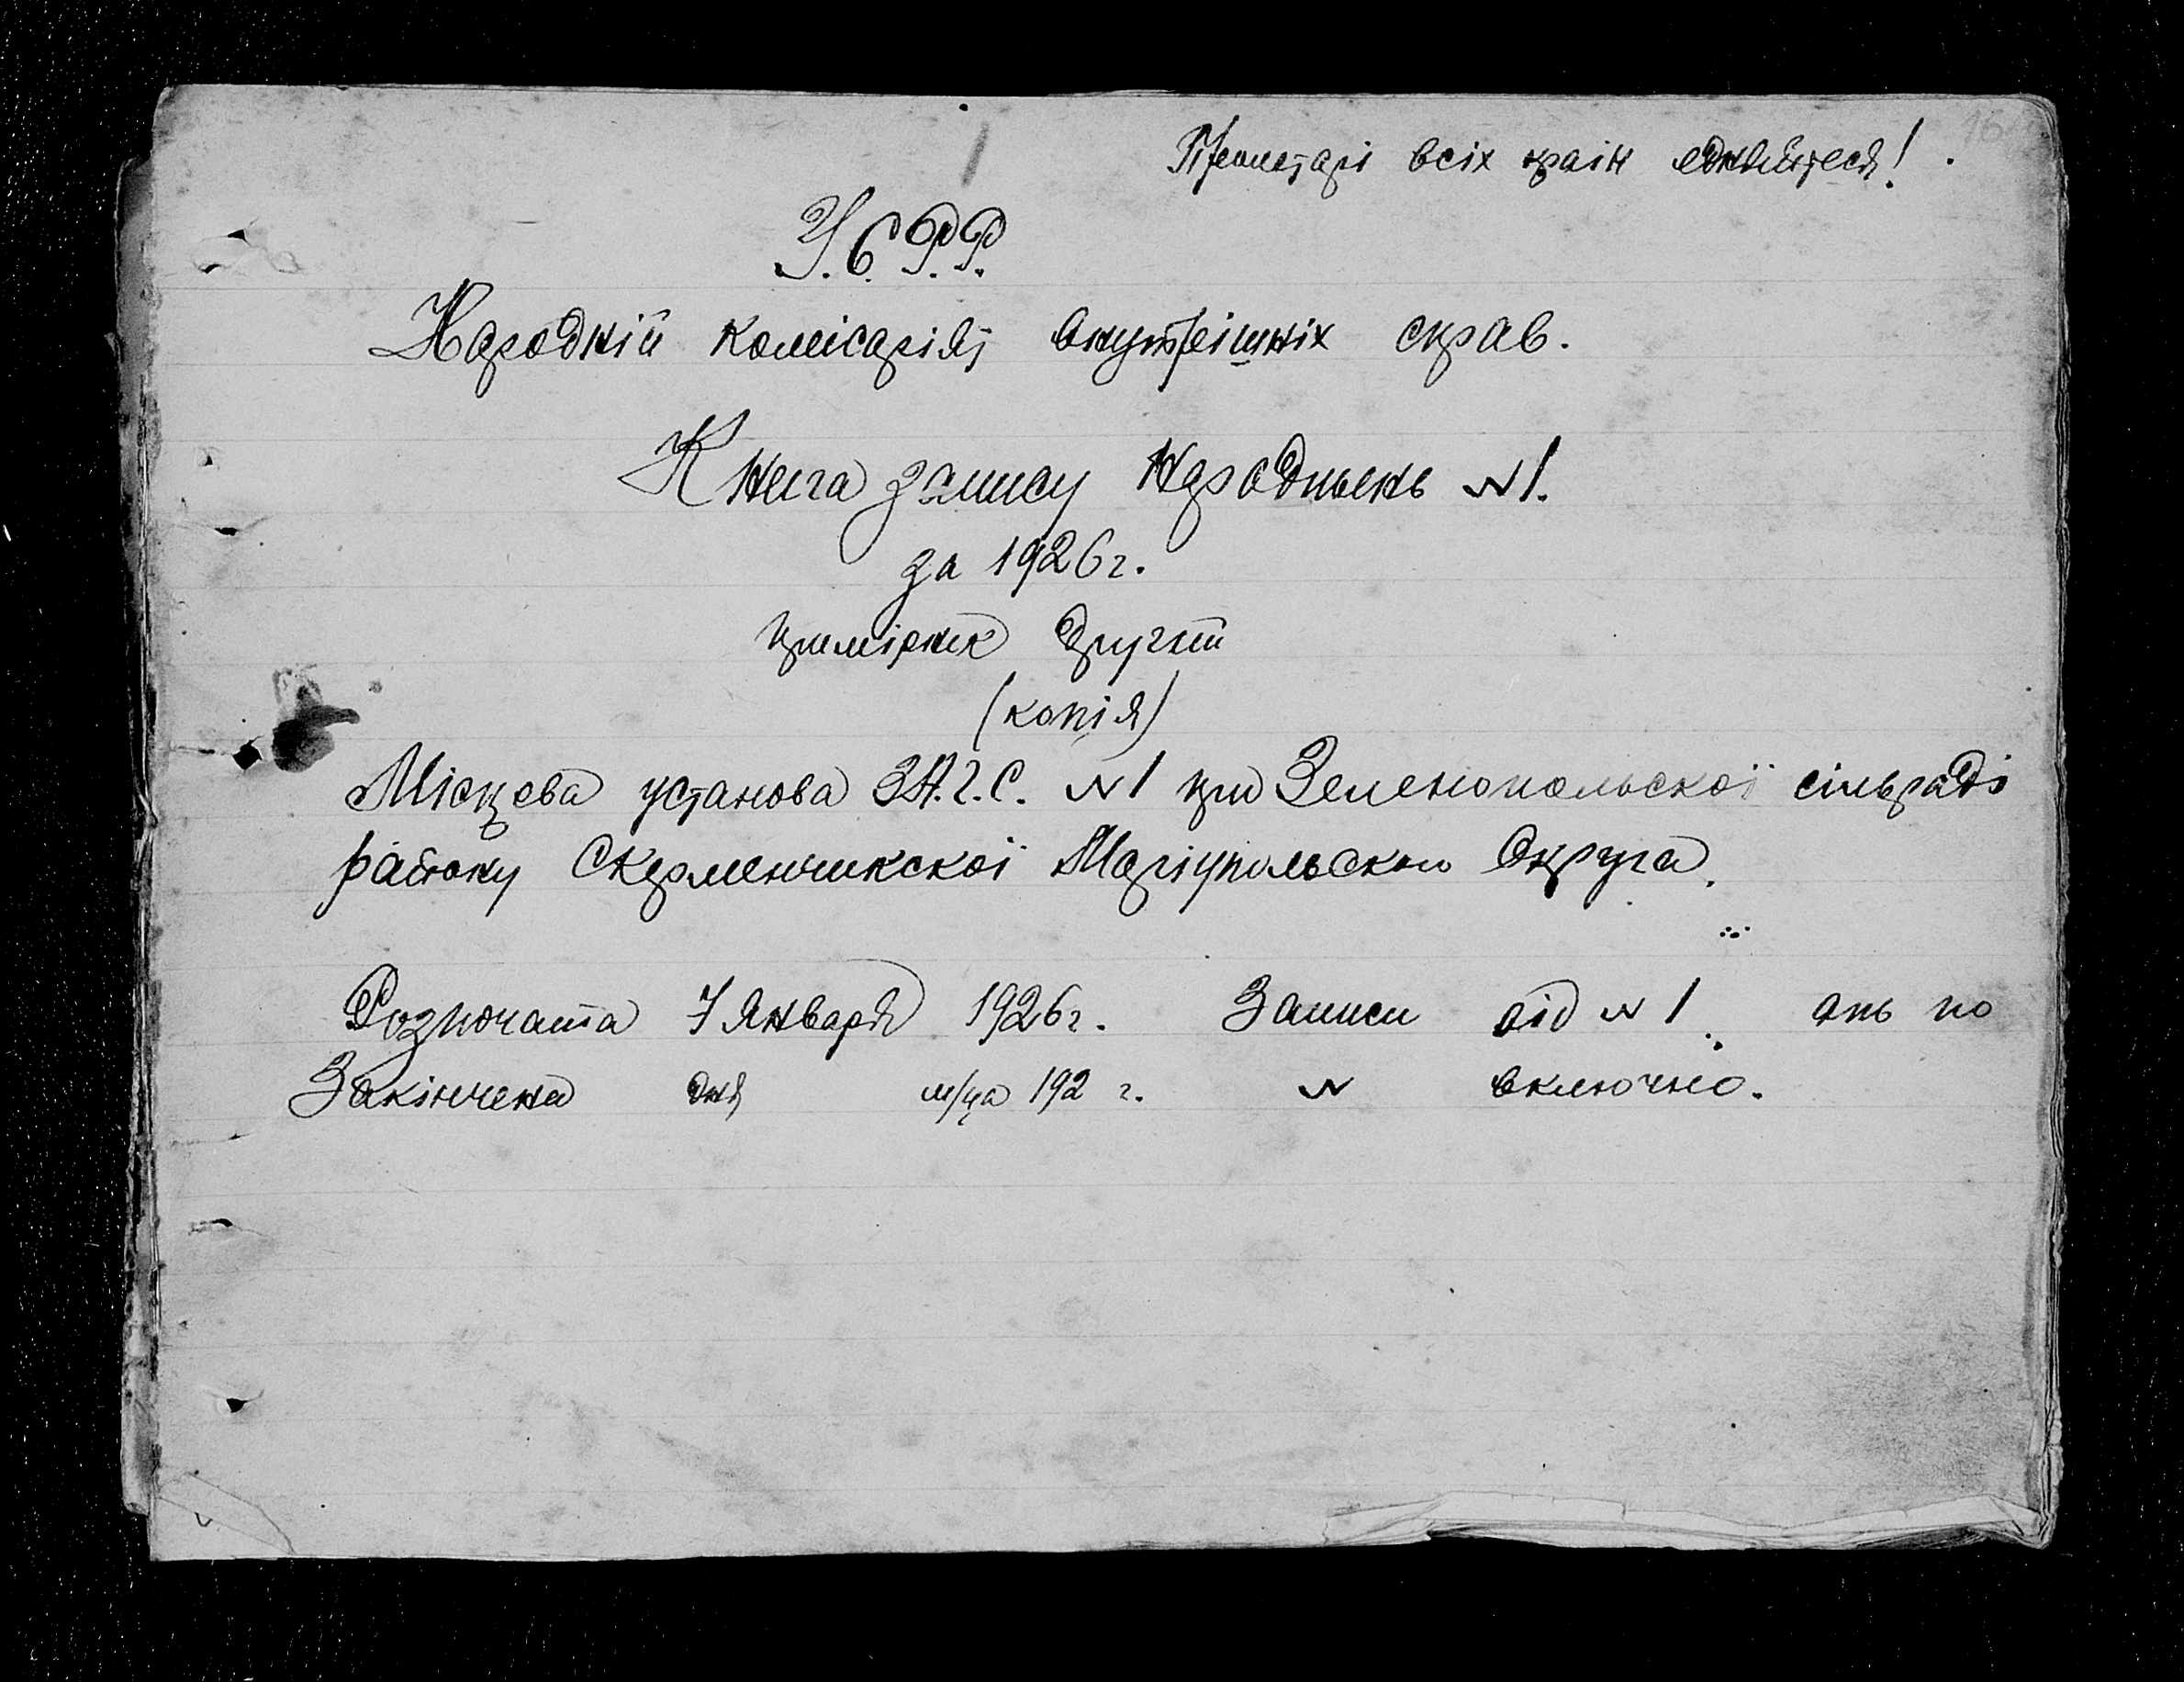 Пролетарі всіх країн єднайтеся!
У.С.Р.Р.
Народній комісаріят внутрішніх справ.
Книга запису народжень N1.
за 1926 г.
примірник другий
(копія)
Місцева установа ЗА.Г.С. N1 при Зеленопольскої сільраді
району Скарменчикскої Маріупольскои Округа.
Розпочата 7 Января 1926 г. Записи від N 1. ань по
Закінчена дня м/ца 192 г. N включно.